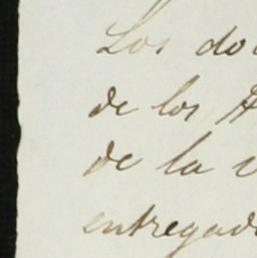 Los do
de los
de la
entregad